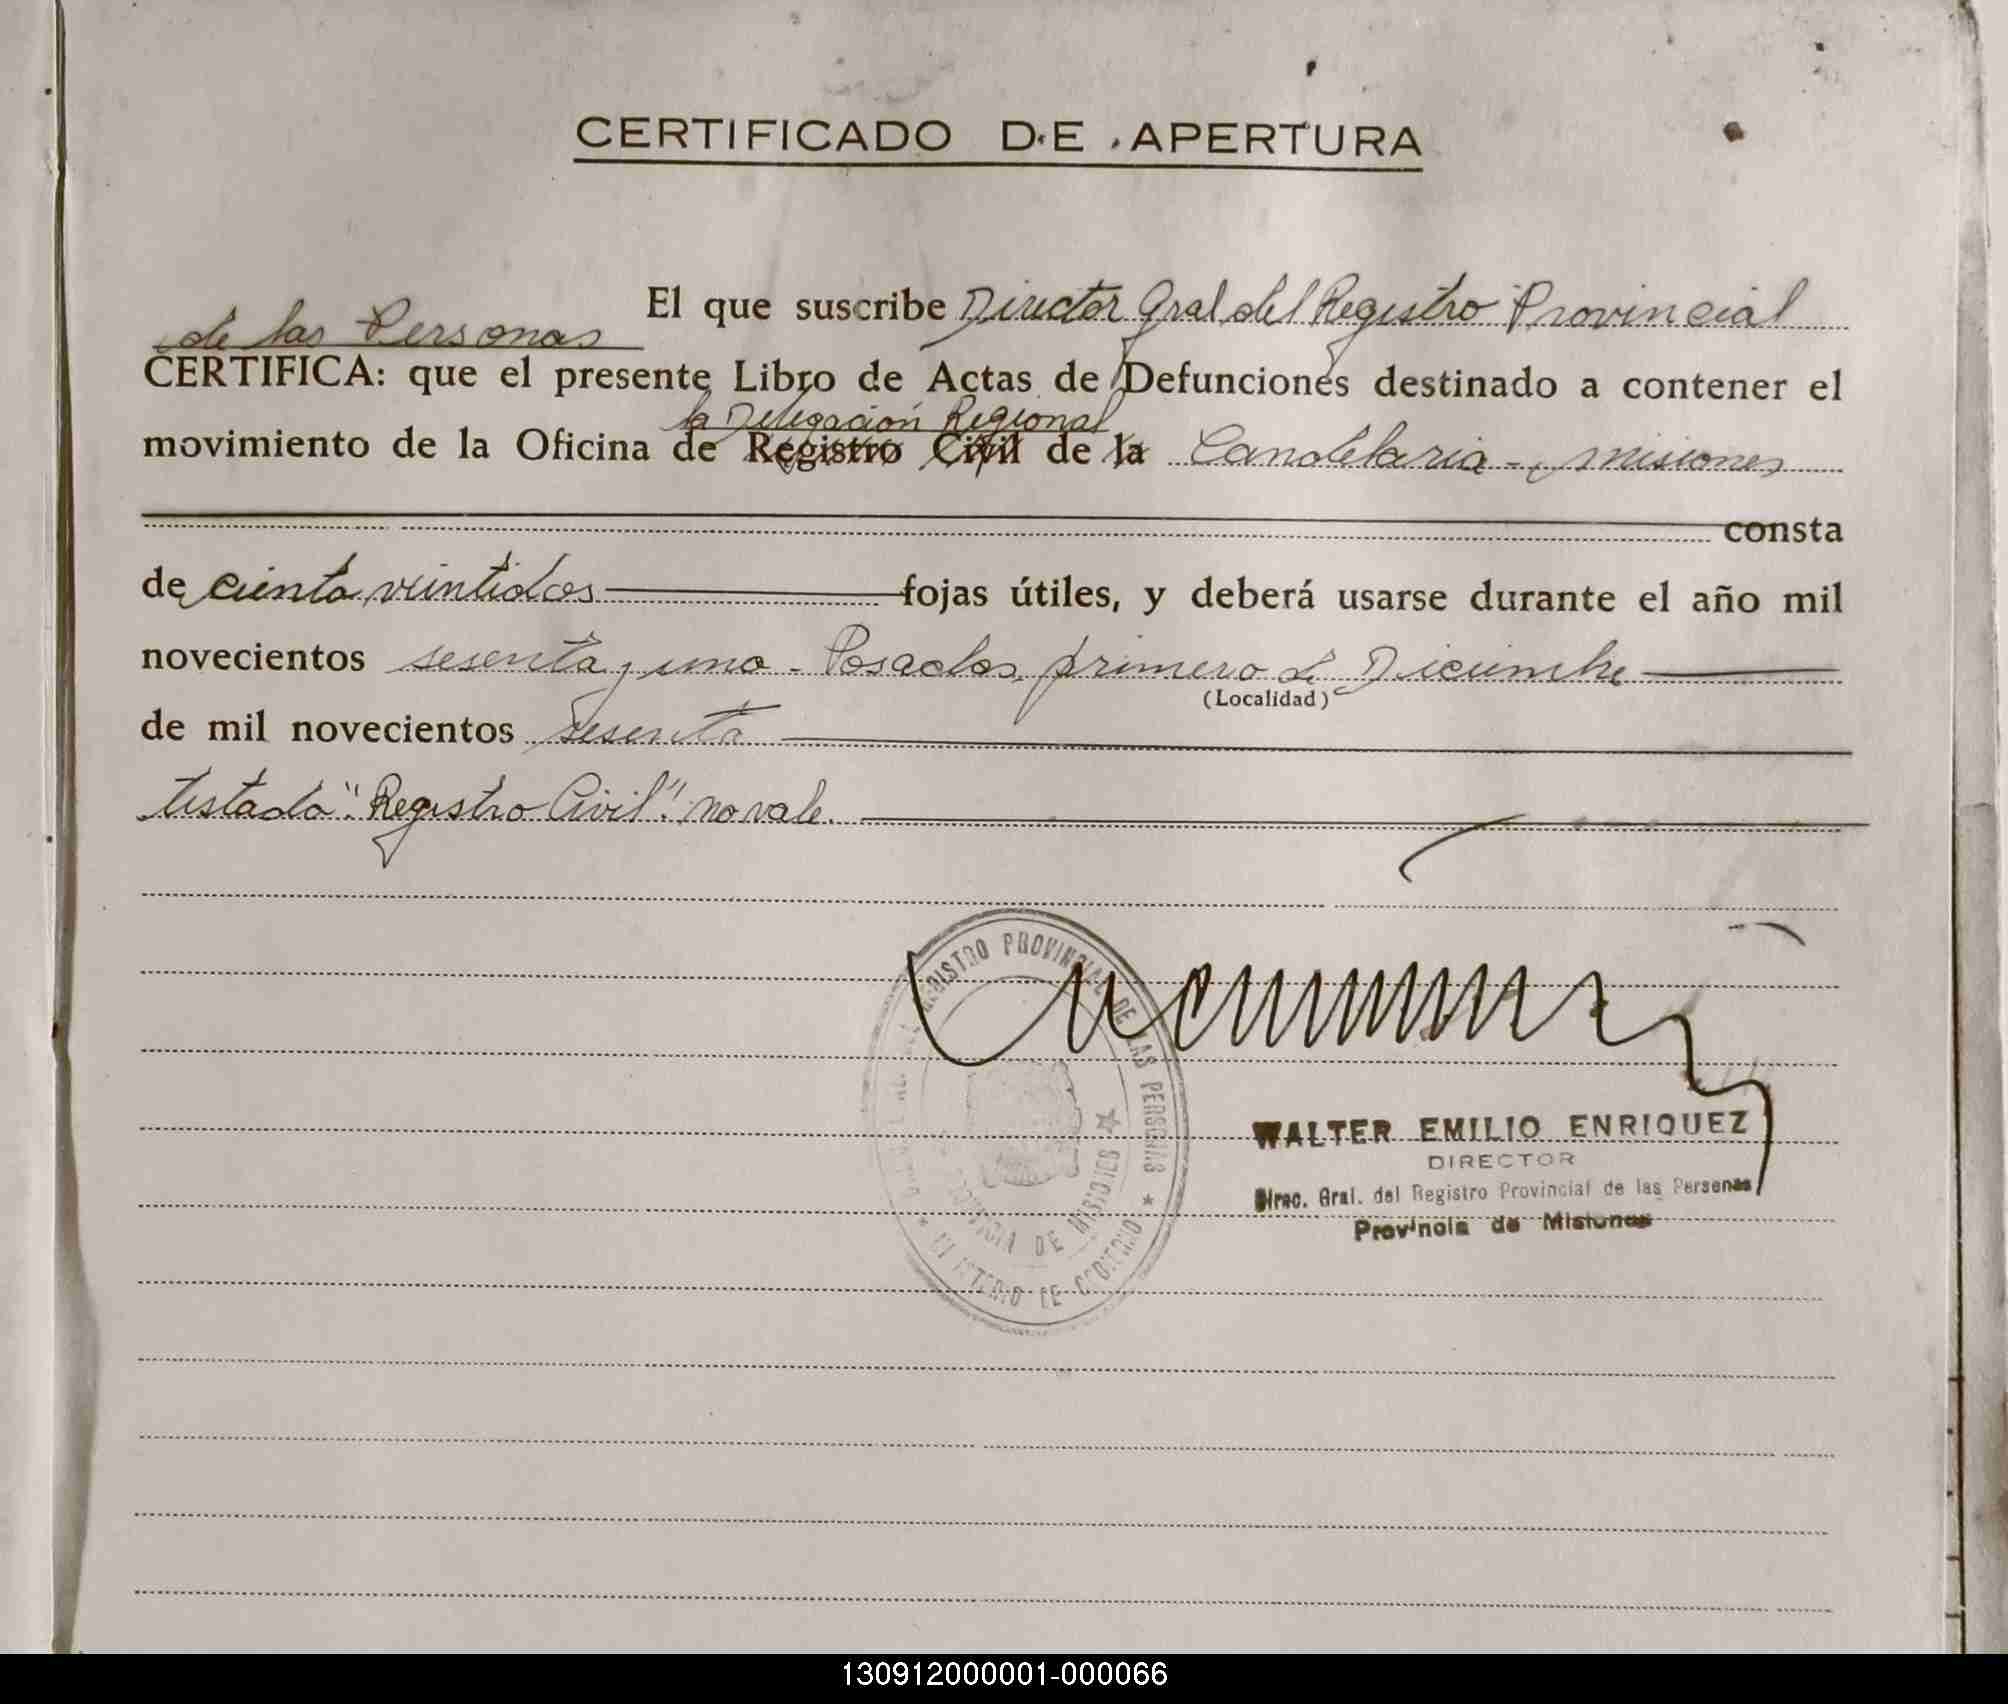 CERTIFICADO DE APERTURA
El que suscribe Director Gral del Registro Provincial
de las Personas
CERTIFICA: que el presente Libro de Actas de Defunciones destinado a contener el
la Delegación Regional
movimiento de la Oficina de Registro Civil de la Candelaria - Misiones
consta
de ciento veintidos fojas útiles, y deberá usarse durante el año mil
novecientos sesenta y uno - Posadas, primero de Diciembre
(Localidad)
de mil novecientos sesenta
testado "Registro Civil": no vale.
REGISTRO PROVINCIAL DE LAS PERSONAS
PROVINCIA DE MISIONES
MINISTERIO DE GOBIERNO
WALTER EMILIO ENRIQUEZ
DIRECTOR
Direc. Gral. del Registro Provincial de las Personas
Provincia de Misiones
130912000001-000066